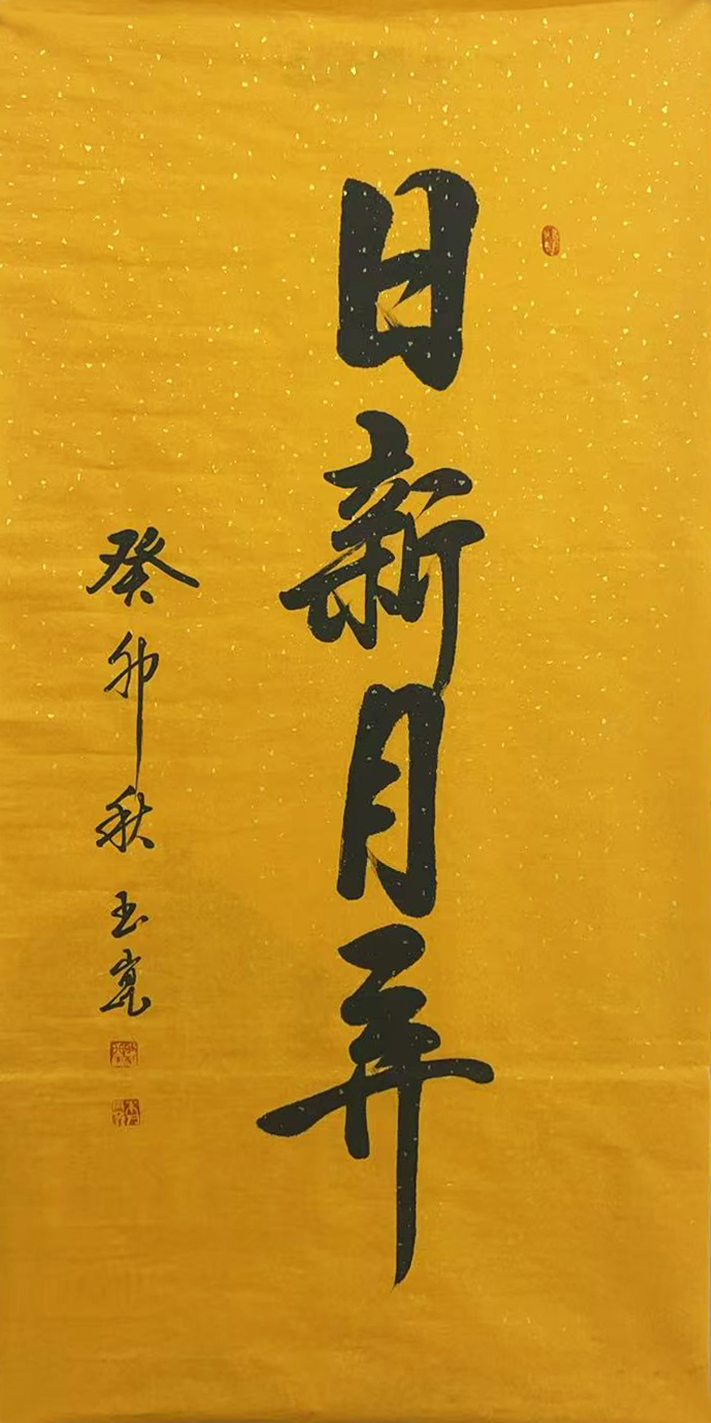 日新月异
癸卯秋玉崑